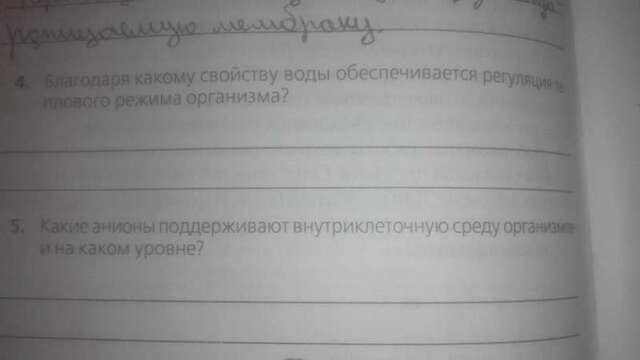 ропицаемую мембрану.
4. Благодаря какому свойству воды обеспечивается регуляция те
плового режима организма?
5. Какие анионы поддерживают внутриклеточную среду организма
и на каком уровне?